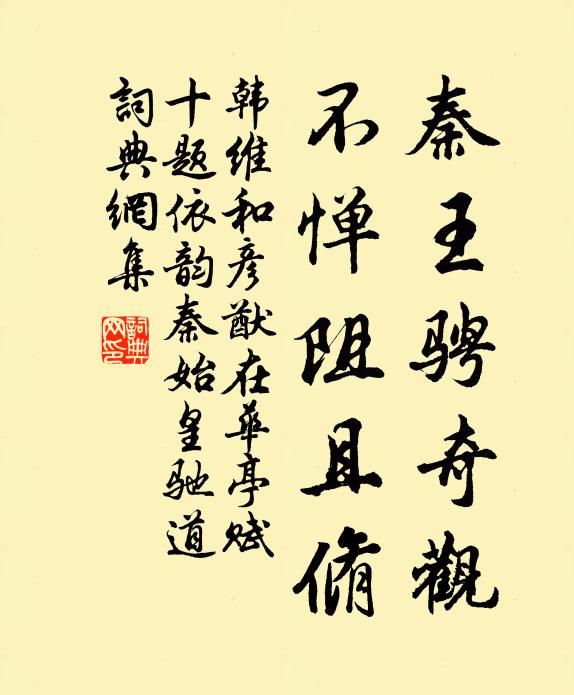 秦王骋奇觀
不惮阻且脩
韩维和彦猷在華亭赋
十题依韵秦始皇驰道
詞典網集
詞典网印